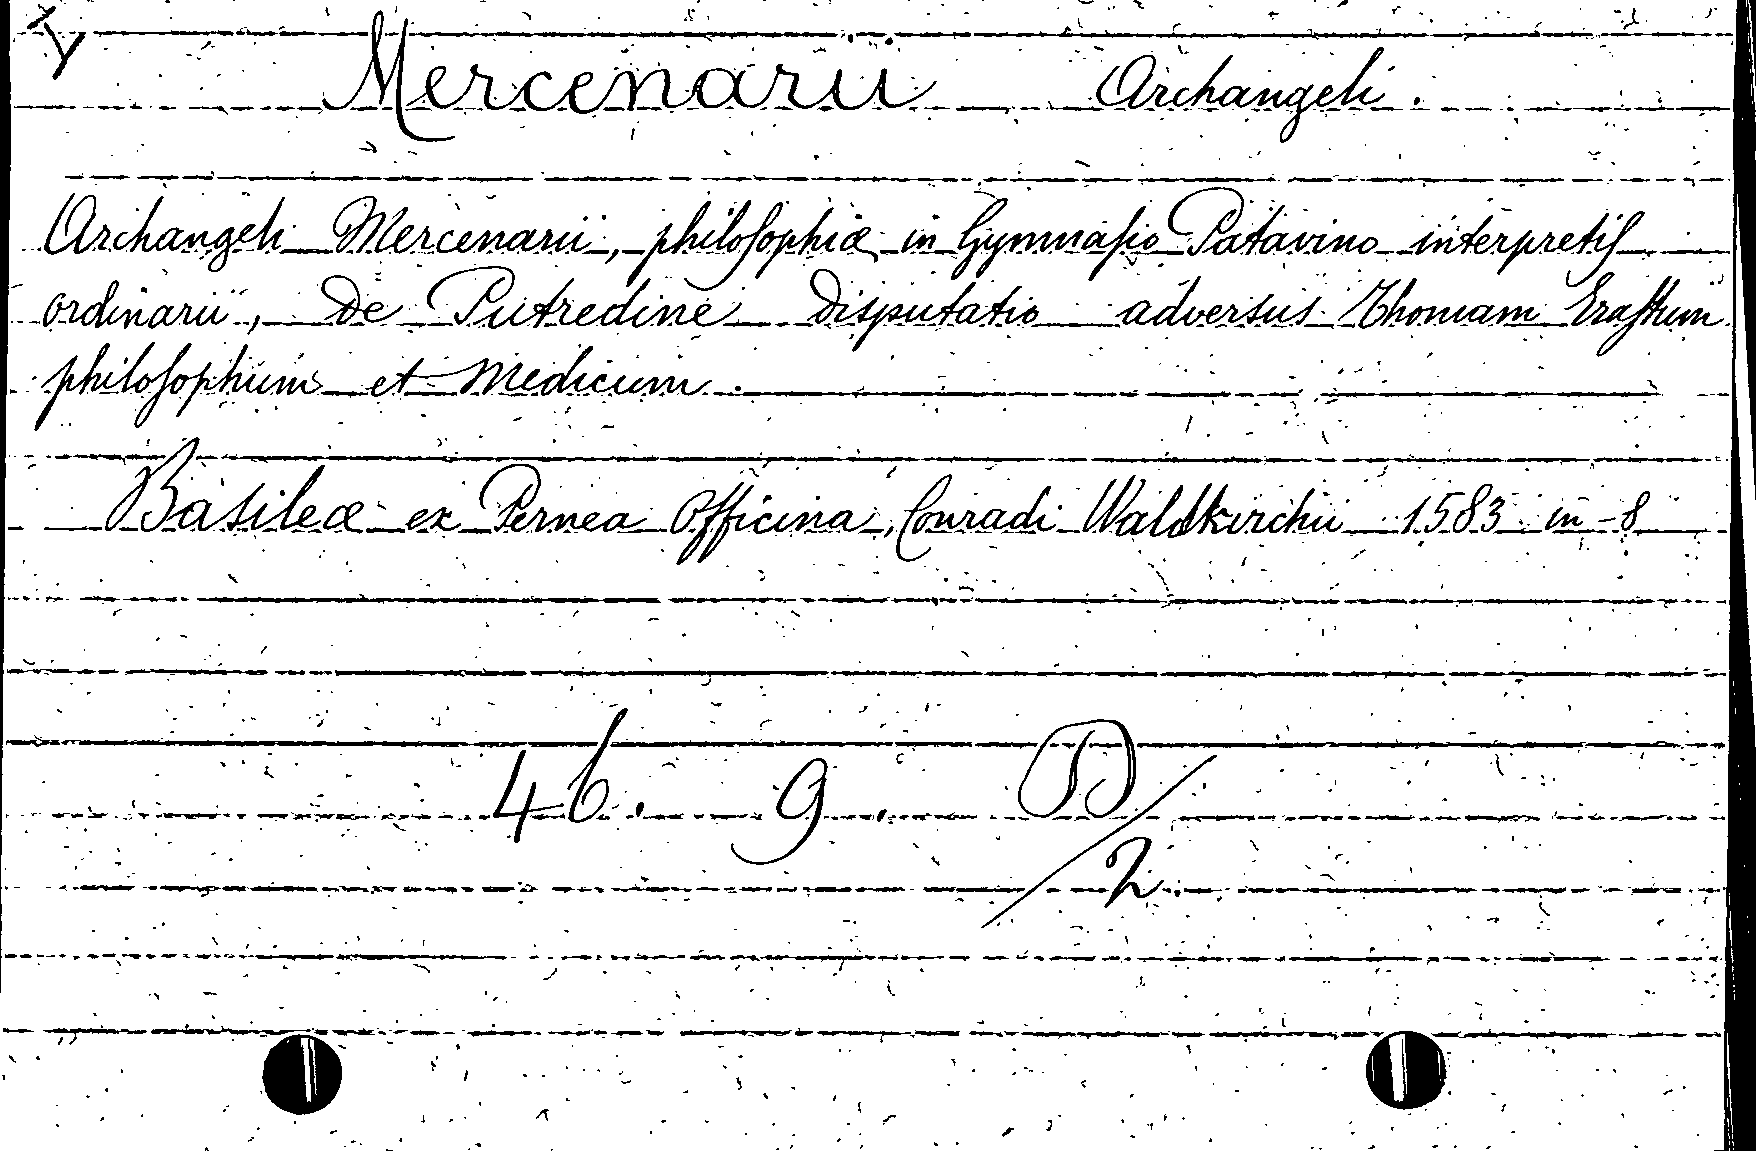 Mercenarii Archangeli.
Archangeli Mercenarii, philosophiæ in Gymnasio Patavino interpretis
ordinarii, De Putredine disputatio adversus Thomam Erastum
philosophum et Medicum.
Basileæ ex Pernea Officina, Conradi Waldkirchii 1583 in-8
46. 9. D/2.